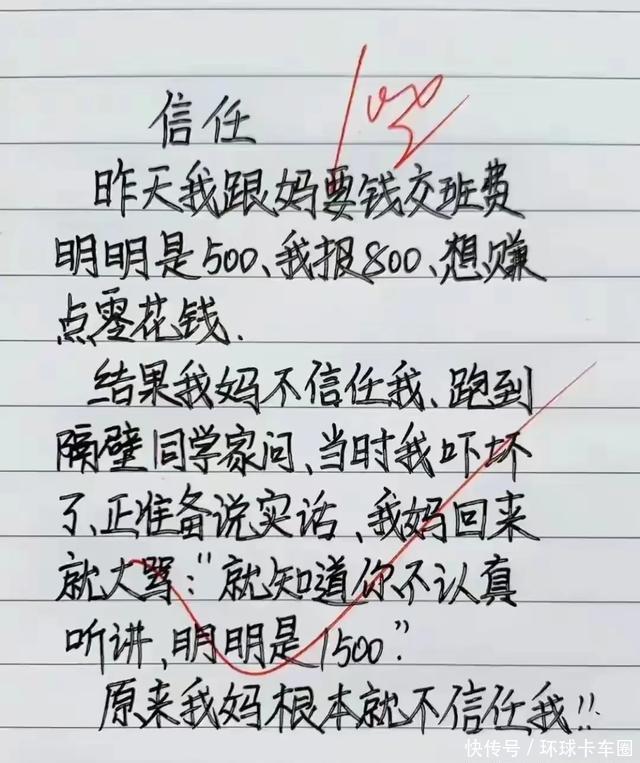 信任
100
昨天我跟妈要钱交班费
明明是500、我报800、想赚
点零花钱.
结果我妈不信任我、跑到
隔壁同学家问、当时我吓坏
了、正准备说实话、我妈回来
就大骂:"就知道你不认真
听讲,明明是1500."
原来我妈根本就不信任我!!
快传号/环球卡车圈